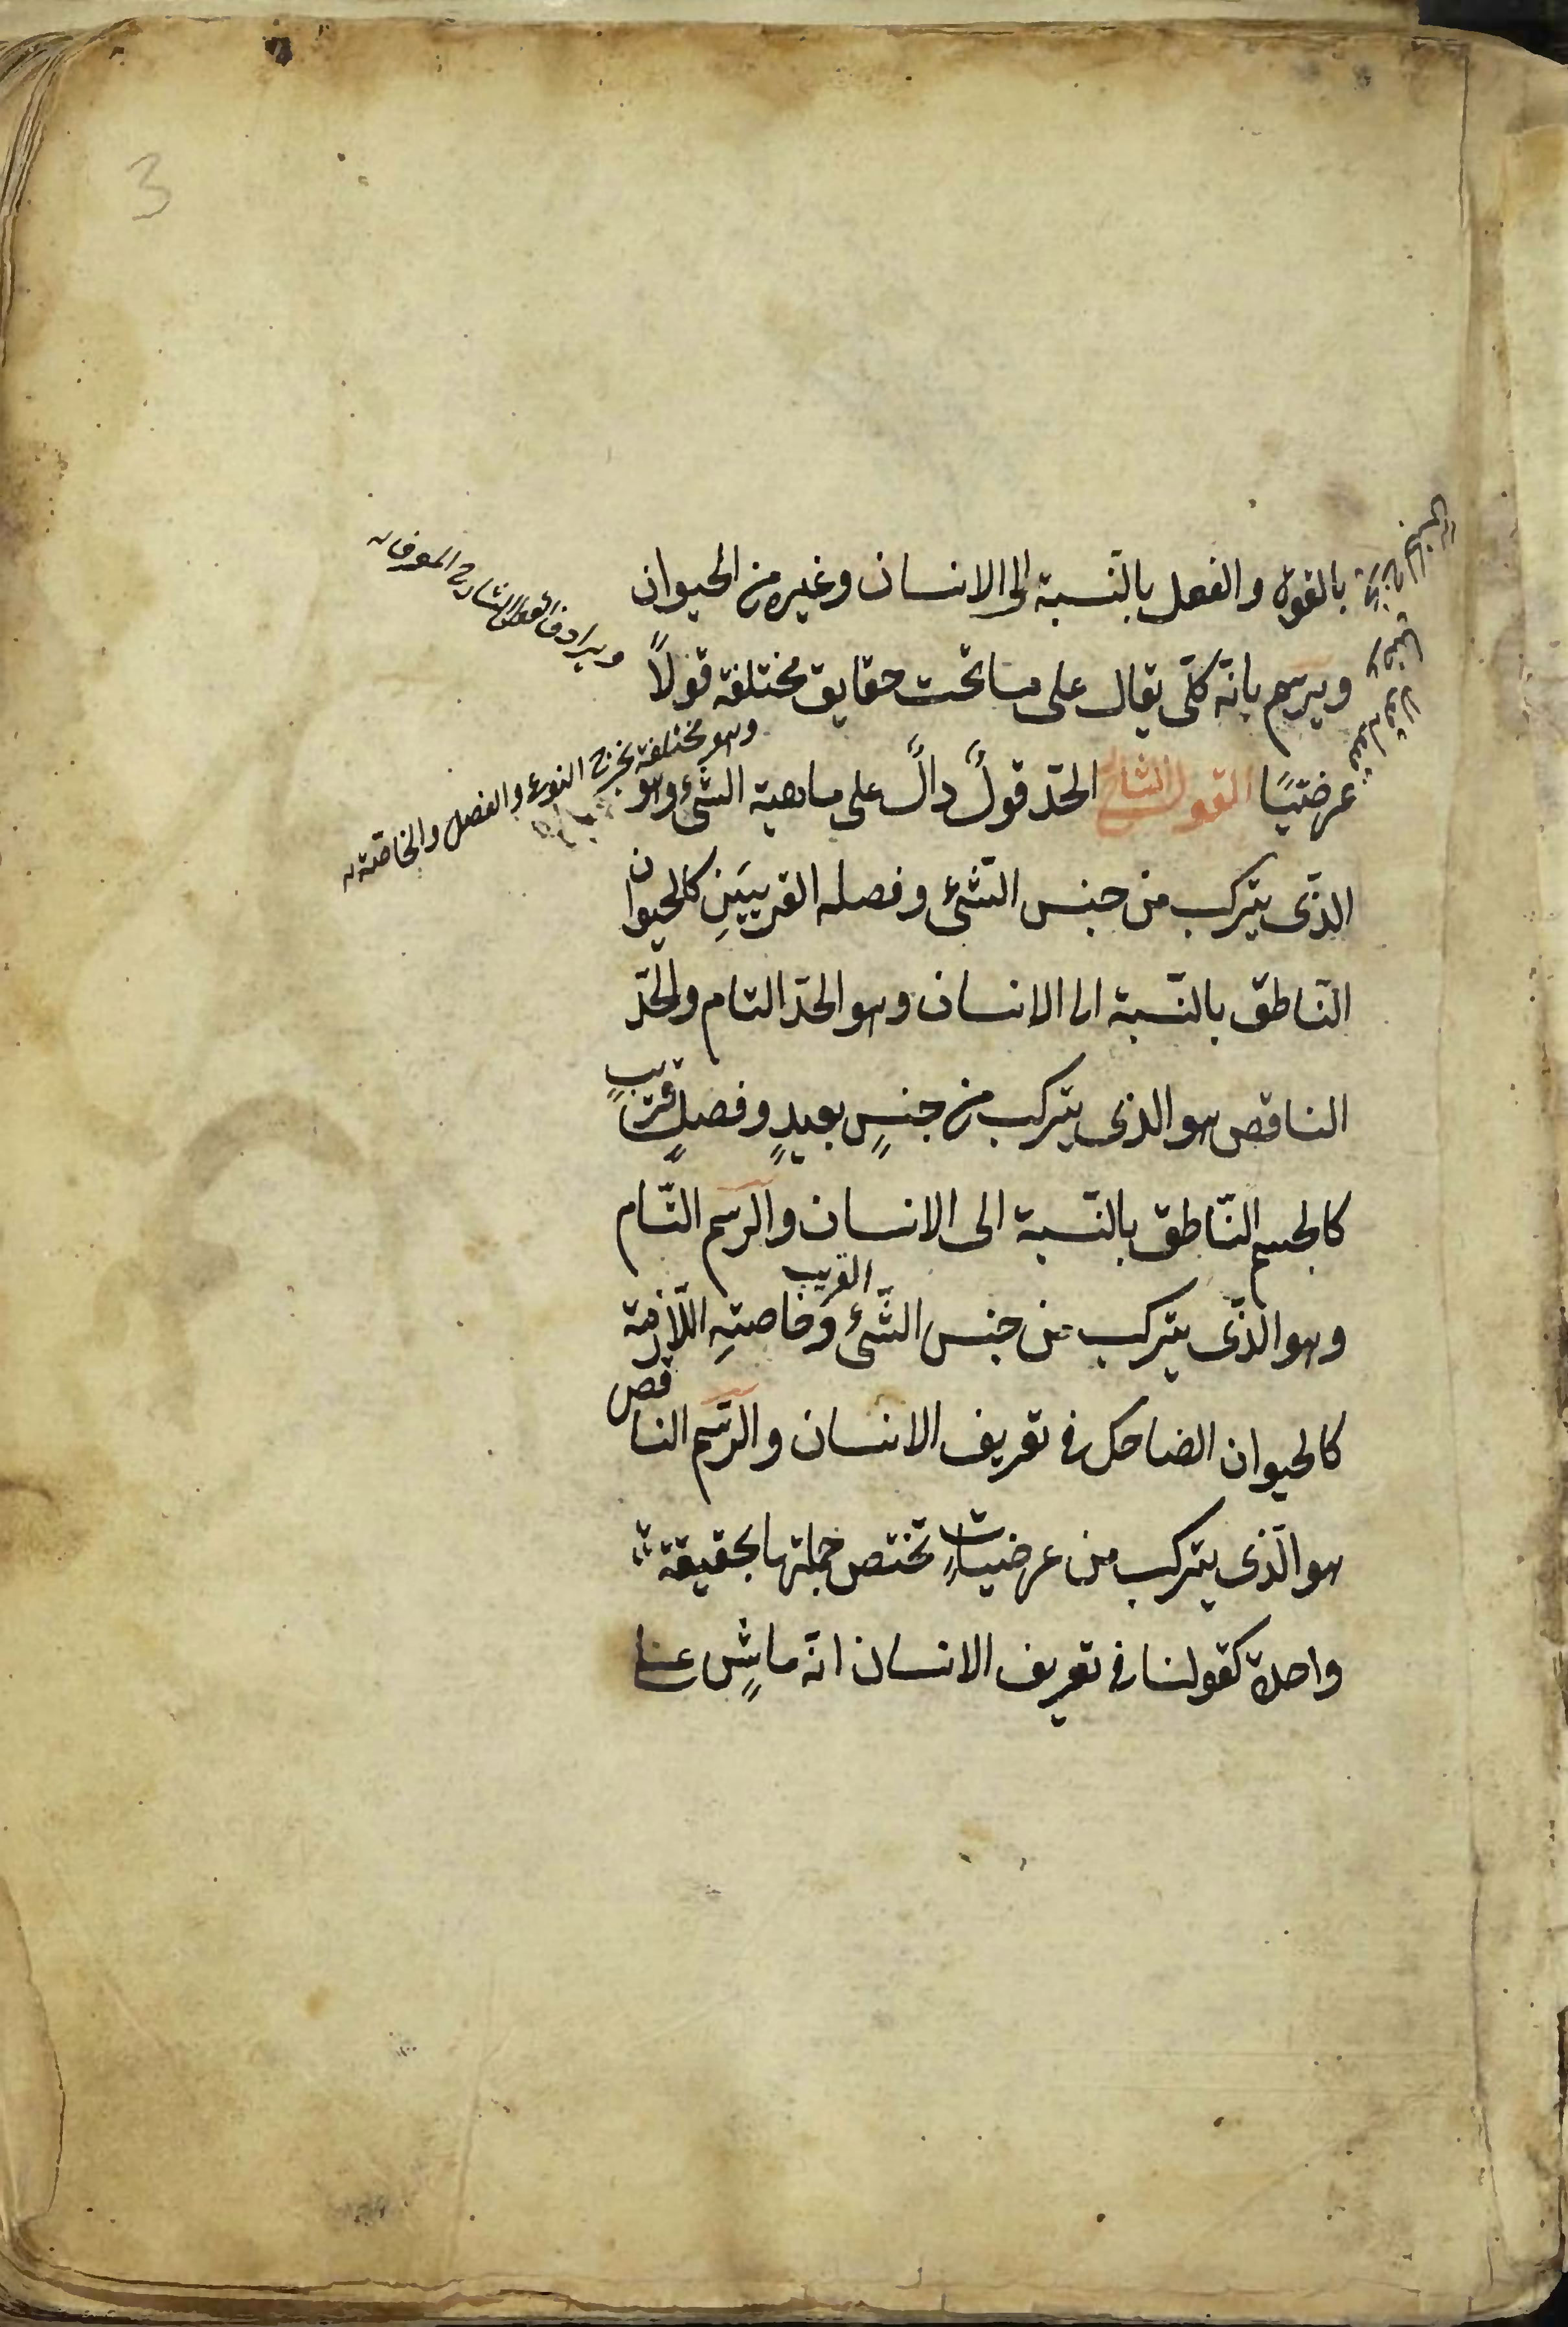 بالقوة والفعل بالنّسبة الى الانسان وغيره من الحيوان
ويرسم بانّه كلّى يقال على ما تحت حقايق مختلفة قولاً
عرضيًا القول الشارح الحدّ قولٌ دالٌّ على ماهية الشئ وهو
الذّى يتركب من جنس الشّئ وفصله القريبَينِ كالحيوان
النّاطق بالنّسبة الى الانسان وهو الحدّ التام والحدّ
الناقص هو الذى يتركب من جنسٍ بعيدٍ وفصلٍ قريبٍ
كالجسم النّاطق بالنّسبة الى الانسان والرّسم التّام
وهو الذّى يتركب من جنس الشّئ القريب وخاصتِه اللّازمة
كالحيوان الضاحك فى تعريف الانسان والرّسم الناقص
هو الّذى يتركب من عرضياتٍ تختص جملتها بحقيقة
واحدة كقولنا فى تعريف الانسان انّه ماشٍ على
ويرادف القول الشارح المعرف
وهو مختلفة يخرج النوع والفصل والخاصّة